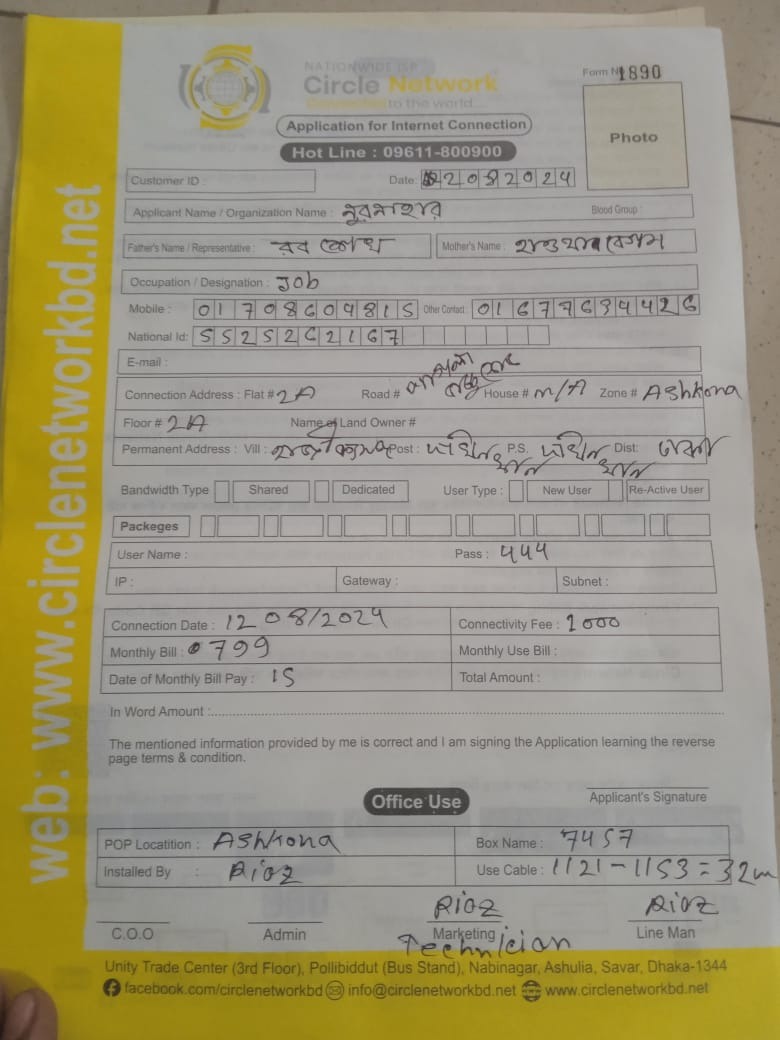 NATIONWIDE ISP
Circle Network
Connected to the world...
Form No 1890
Application for Internet Connection
Hot Line : 09611-800900
Photo
Customer ID :
Date: 12082024
Applicant Name / Organization Name : নুরনাহার
Blood Group :
Father's Name / Representative : রব শেখ
Mother's Name : বেগম
Occupation / Designation : Job
Mobile : 01708609815 Other Contact : 01677634426
National Id: 5525262167
E-mail :
Connection Address : Flat # 2A Road # House # m/A Zone # Ashkona
Floor # 2A Name of Land Owner #
Permanent Address : Vill : Post : দক্ষিনখান P.S. দক্ষিনখান Dist: ঢাকা
Bandwidth Type Shared Dedicated User Type : New User Re-Active User
Packeges
User Name : Pass : 444
IP : Gateway : Subnet :
Connection Date : 12 08/2024 Connectivity Fee : 1000
Monthly Bill : 799 Monthly Use Bill :
Date of Monthly Bill Pay : 15 Total Amount :
In Word Amount :
The mentioned information provided by me is correct and I am signing the Application learning the reverse
page terms & condition.
Applicant's Signature
Office Use
POP Locatition : Ashkona Box Name : 7457
Installed By : Riaz Use Cable : 1121-1153=32m
Riaz Riaz
C.O.O Admin Marketing Line Man
Technician
Unity Trade Center (3rd Floor), Pollibiddut (Bus Stand), Nabinagar, Ashulia, Savar, Dhaka-1344
facebook.com/circlenetworkbd info@circlenetworkbd.net www.circlenetworkbd.net
web: www.circlenetworkbd.net